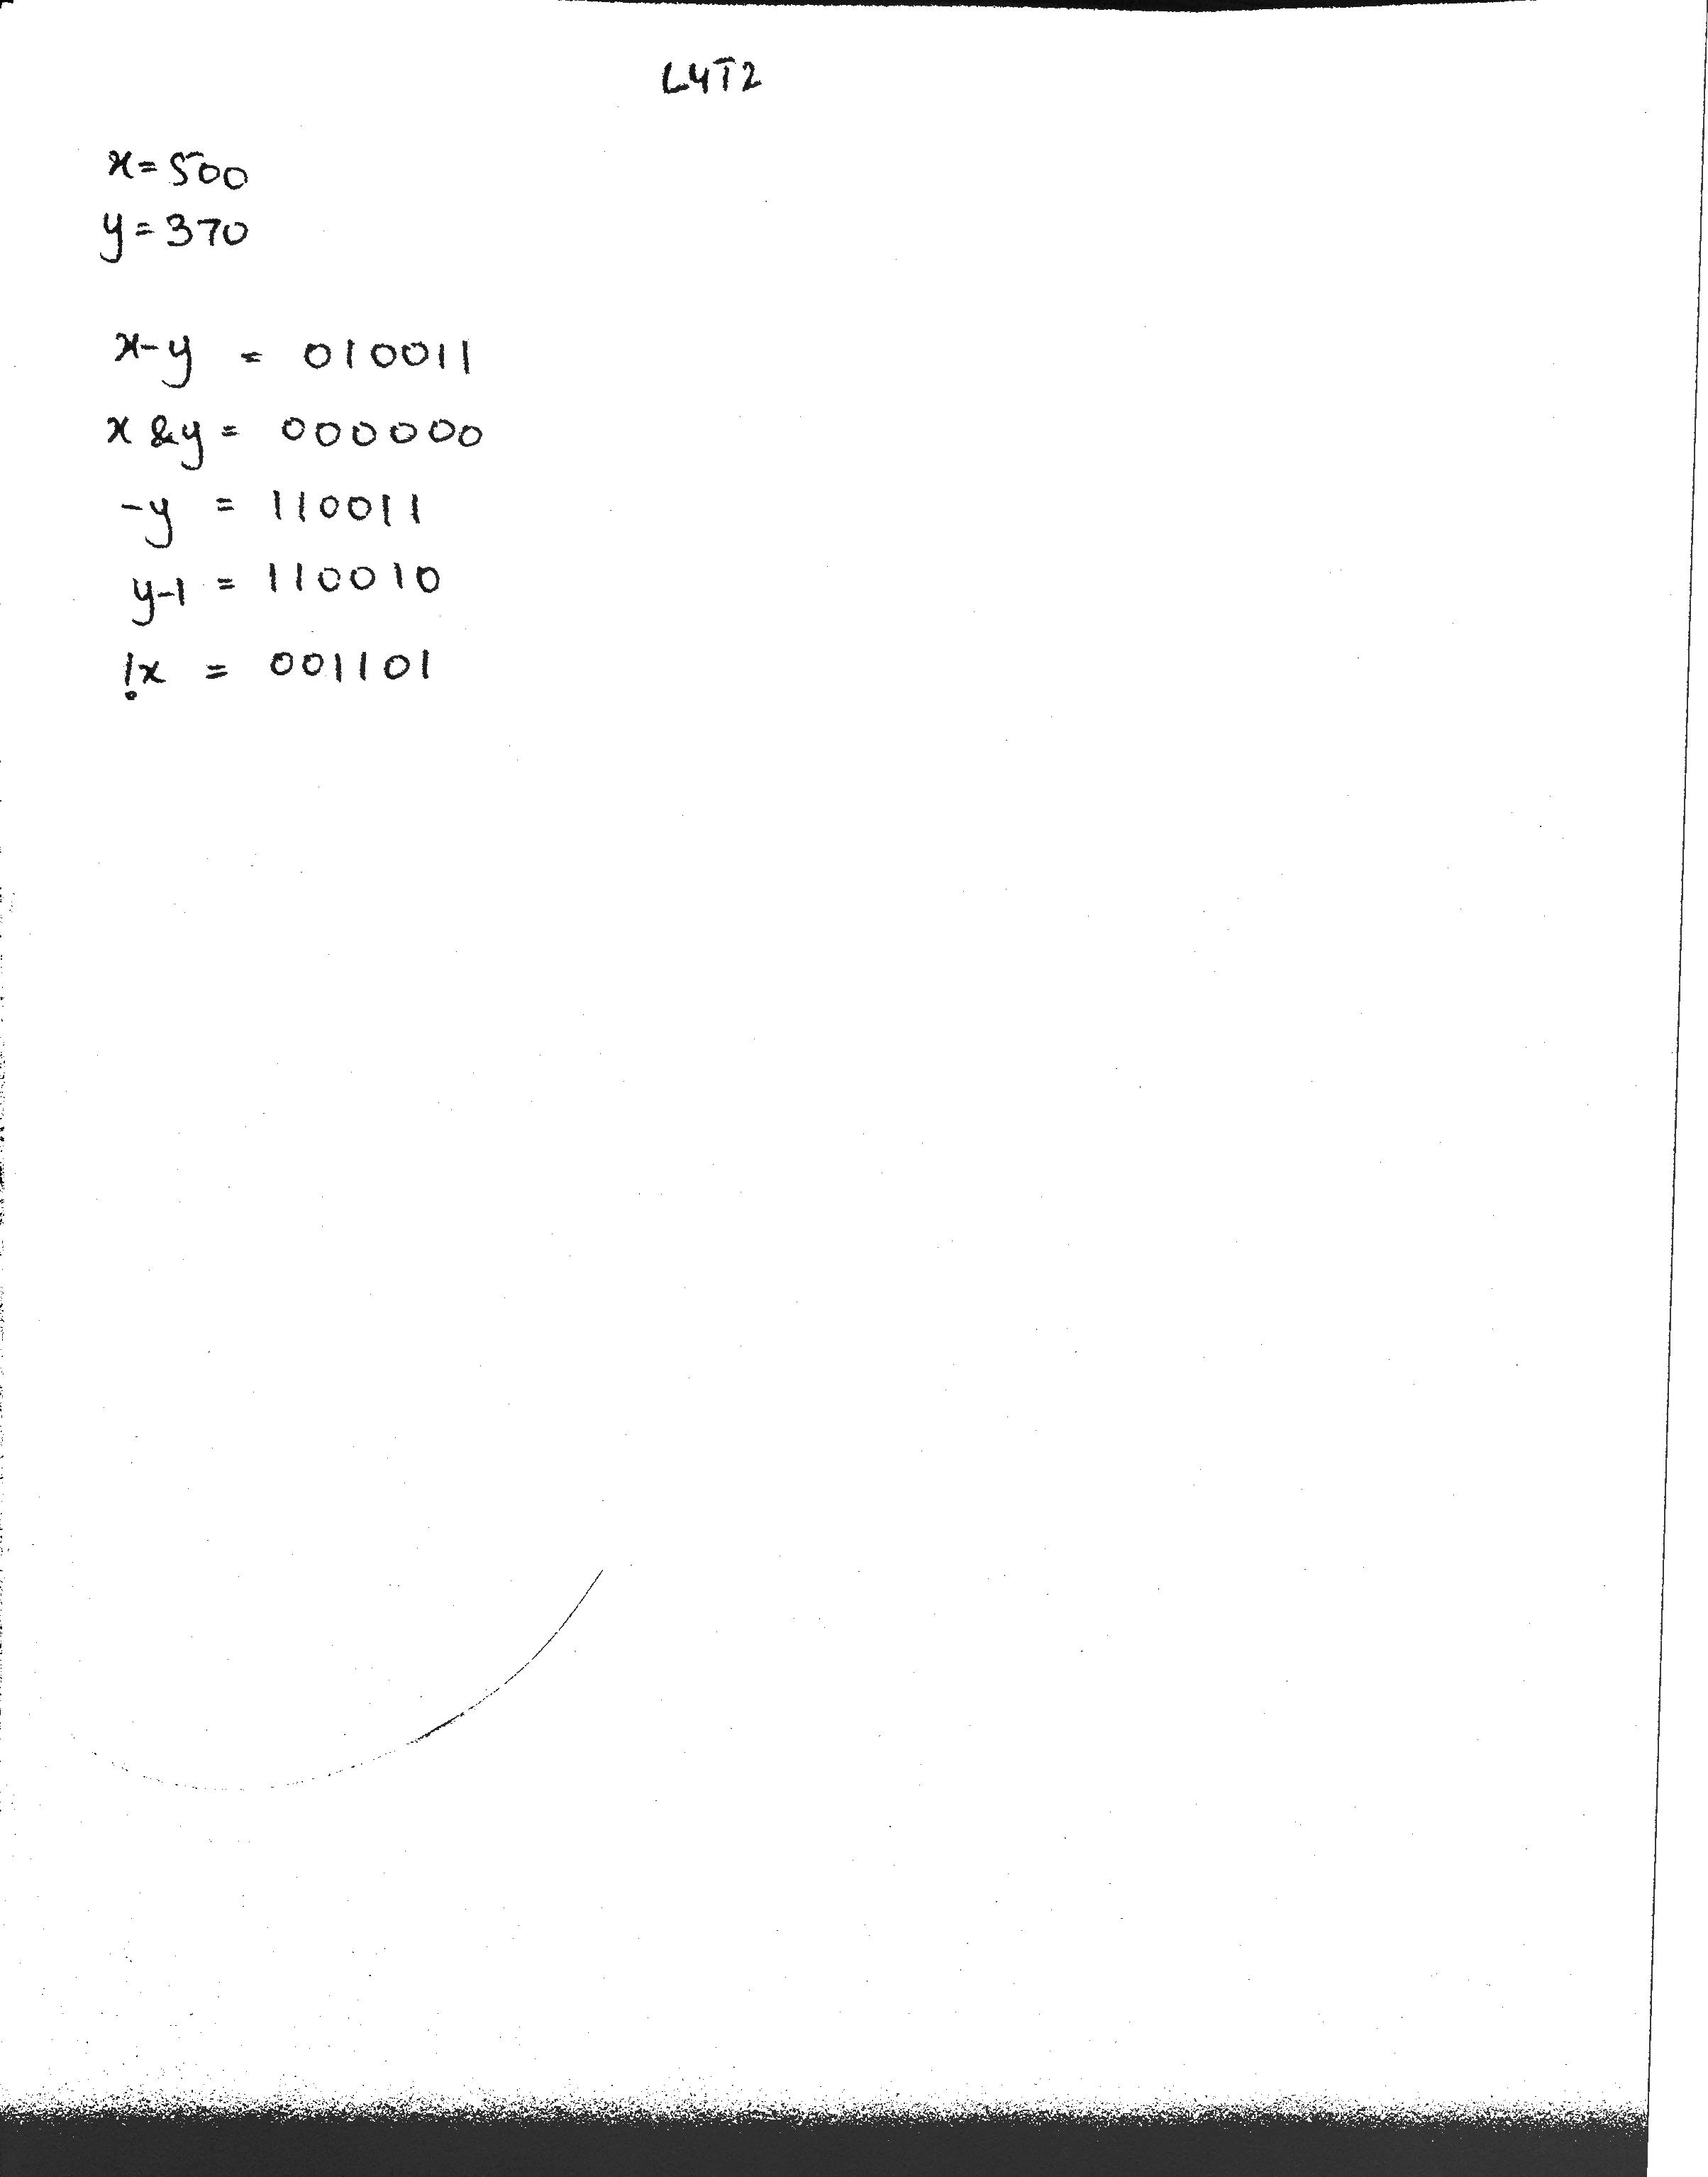 L4T2
x=500
y=370
x-y = 010011
x&y = 000000
-y = 110011
y-1 = 110010
!x = 001101